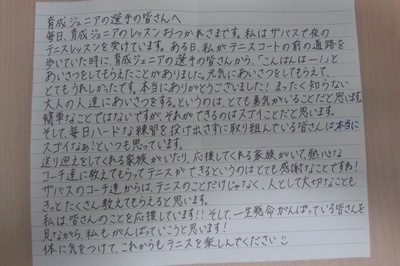 育成ジュニアの選手の皆さんへ
毎日、育成ジュニアのレッスンおつかれさまです。私はザバスで夜の
テニスレッスンを受けています。ある日、私がテニスコートの前の通路を
歩いていた時に、育成ジュニアの選手の皆さんから、「こんばんはー!」と
あいさつをしてもらえたことがありました。元気にあいさつをしてもらえて、
とてもうれしかったです。本当にありがとうございました!まったく知らない
大人の人達にあいさつをする、というのは、とても勇気がいることだと思います。
簡単なことではないですが、それができるのはスゴイことだと思います。
そして、毎日ハードな練習を投げ出さずに取り組んでいる皆さんは本当に
スゴイなぁ!といつも思っています。
送り迎えをしてくれる家族がいたり、応援してくれる家族がいて、熱心な
コーチ達に教えてもらってテニスができるというのはとても感謝なことですね!
ザバスのコーチ達からは、テニスのことだけじゃなく、人として大切なことも
きっとたくさん教えてもらえると思います。
私は、皆さんのことを応援しています!!そして、一生懸命がんばっている皆さんを
見ながら、私もがんばっていこうと思います!
体に気をつけて、これからもテニスを楽しんでください